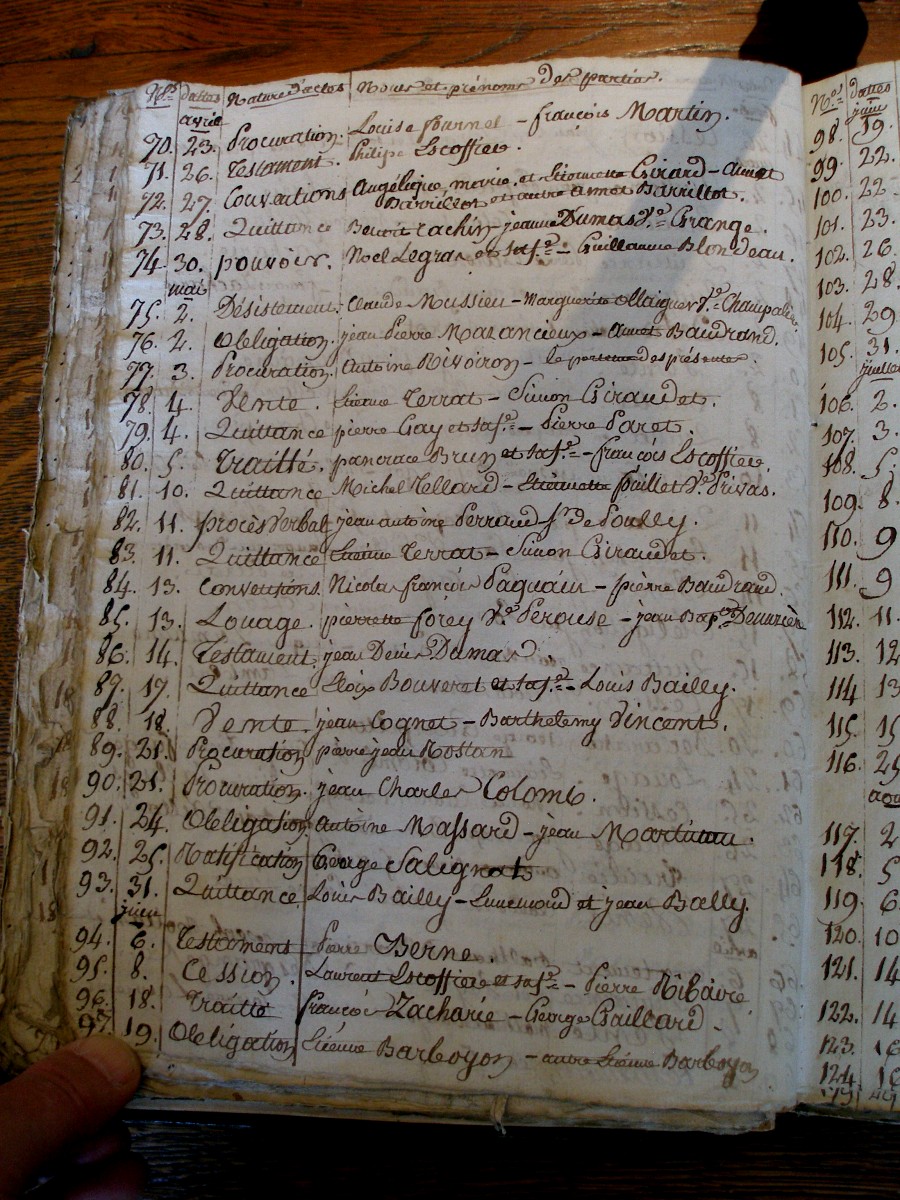 N.os dattes Nature d'actes Noms et prénoms des parties.
avril
70. 23. Procuration. Louise fournel - françois Martin.
71. 26. Testament. Philipe Escoffier.
72. 27. Conventions Angélique, marie, et Etiennette Girard - Aimet
Barrillot et autre Aimet Barrillot.
73. 28. Quittance Benoit rachin - jeanne Dumas V.e Grange.
74. 30. pouvoir. Noel Legras et sa f.e - Guillaume Blondeau.
mai
75. 2. Désistement. Claude Mussieu - Marguerite Allaigner V.e Champalie
76. 2. Obligation. jean Pierre Marancieux - Aimet Baudrand.
77. 3. Procuration. Antoine Rivoiron - le porteur des présentes.
78. 4. Vente. Etienne Terrat - Simon Giraudet.
79. 4. Quittance pierre Gay et sa f.e - Pierre Paret.
80. 5. Traitté. pancrace Brun et sa f.e - françois Escoffier.
81. 10. Quittance Michel Tellard - Etiennette fouillet V.e Privas.
82. 11. procès Verbal jean antoine Perraud S.r de Poully.
83. 11. Quittance Etienne Terrat - Simon Giraudet.
84. 13. Conventions. Nicolas françois Paquain - pierre Baudrand.
85. 13. Louage. pierrette forey V.e Perouse - jean Bap.te
86. 14. Testament jean Denis Dumas.
87. 17. Quittance Eloix Bouveret et sa f.e - Louis Bailly.
88. 18. Vente. jean Cognet - Barthelemy Vincent.
89. 21. Procuration pierre jean Rostan
90. 21. Procuration. jean Charles Colomb.
91. 24. Obligation Antoine Massard - jean Martin
92. 25. Ratification George Salignat
93. 31. Quittance Louis Bailly - et jean Bally.
juin
94. 6. Testament Pierre Berne.
95. 8. Cession. Laurent Escoffier et sa f.e - Pierre Ribaire
96. 18. Traitté françois Zacharie - George Gaillard.
97. 19. Obligation Etienne Barboyon - autre Etienne Barboyon
N.os dattes
juin
98. 19.
99. 22.
100. 22
101. 23.
102. 26.
103. 28.
104. 29
105. 31.
juillet
106. 2.
107. 3.
108. 5.
109. 8.
110. 9
111. 9
112. 11.
113. 12
114 13
115. 15
116. 25
117. 2
118. 5
119. 6.
120. 10
121. 14
122. 14
123. 16
124. 16